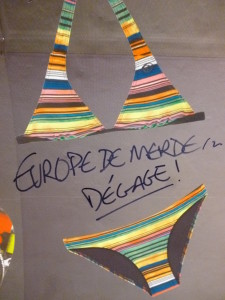 EUROPE DE MERDE
DÉGAGE!